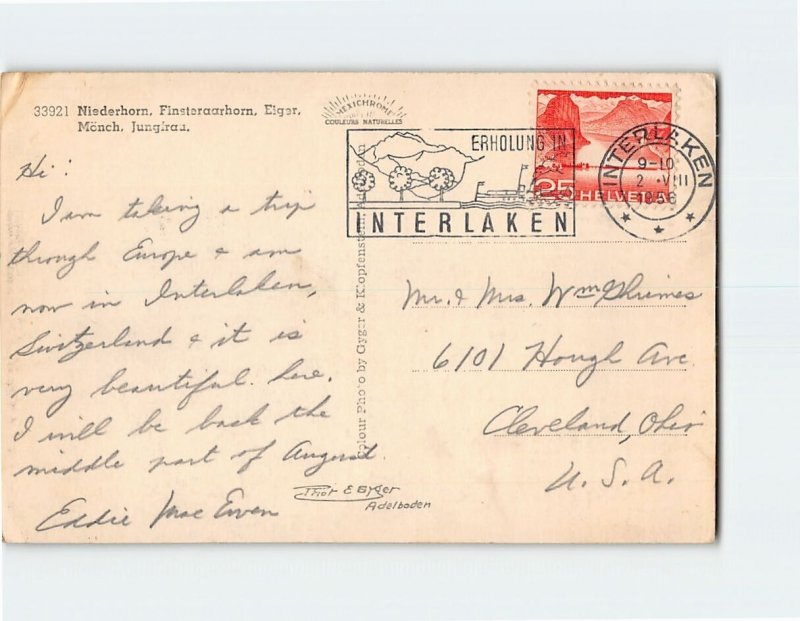 33921 Niederhorn, Finsteraarhorn, Eiger,
Mönch, Jungfrau.
MEXICHROME
COULEURS NATURELLES
ERHOLUNG IN
INTERLAKEN
25 HELVETIA
INTERLAKEN
9-10
2. VIII
1956
Hi!
I am taking a trip
through Europe & am
now in Interlaken,
Switzerland & it is
very beautiful here.
I will be back the
middle part of August.
Eddie Mac Ewen
Colour Photo by Gyger & Klopfenstein Adelboden
Phot E Gyger
Adelboden
Mr. & Mrs. Wm Shrimes
6101 Hough Ave
Cleveland, Ohio
U. S. A.